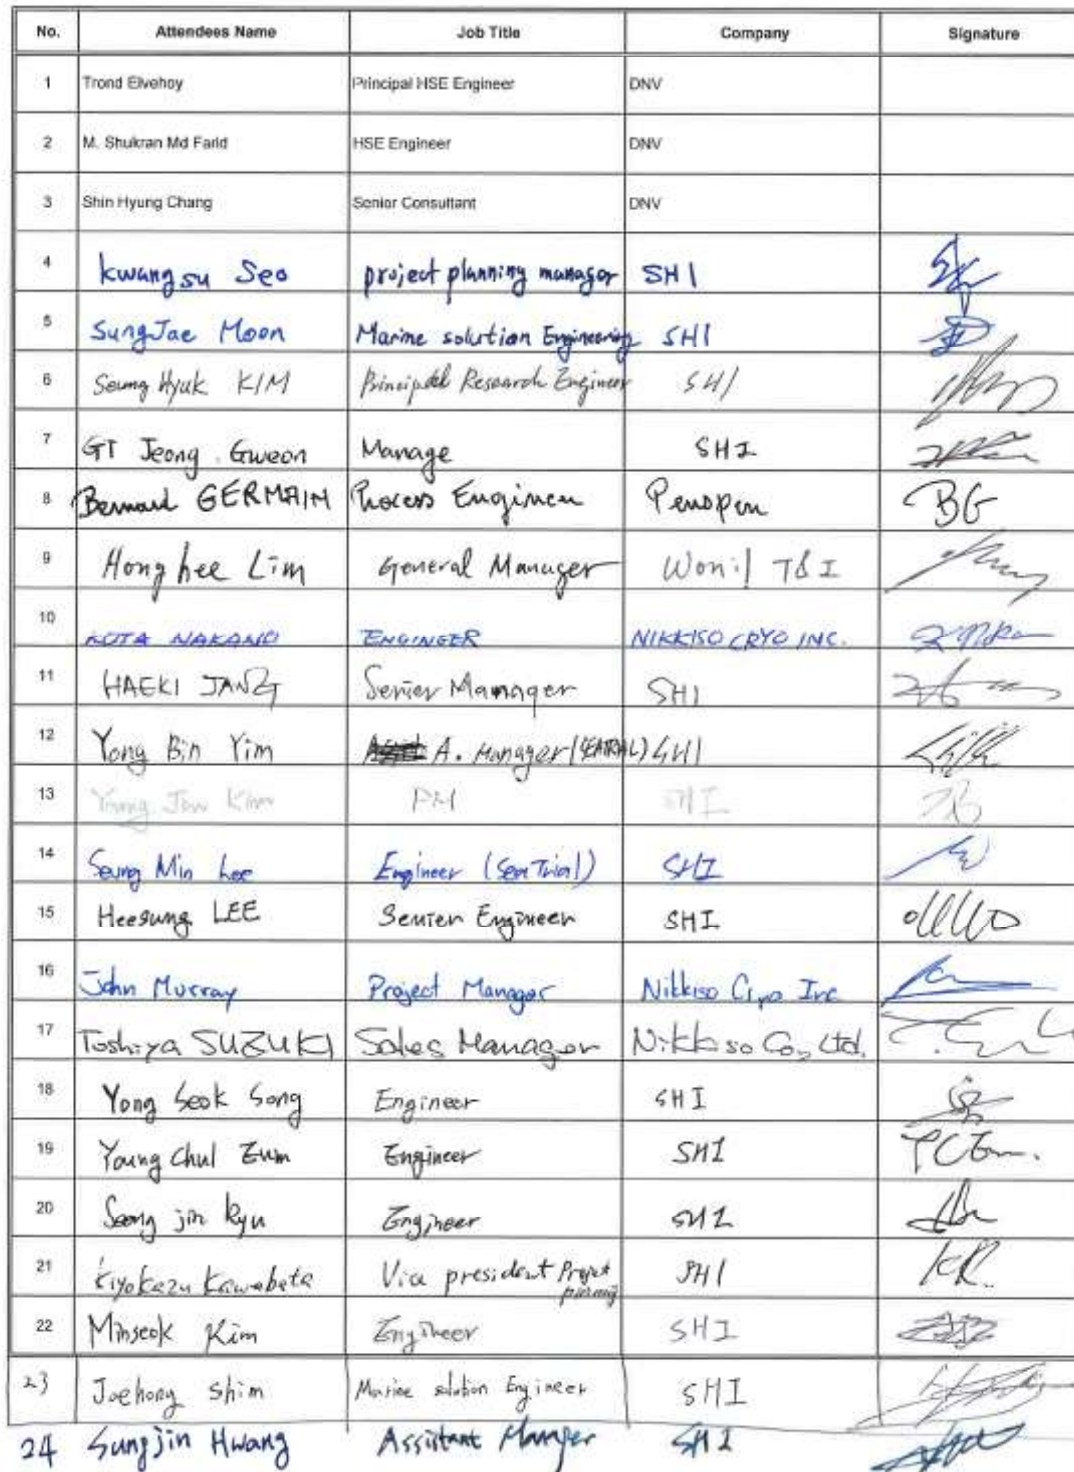 No. Attendees Name Job Title Company Signature
1 Trond Elvehoy Principal HSE Engineer DNV
2 M. Shukran Md Farid HSE Engineer DNV
3 Shin Hyung Chang Senior Consultant DNV
4 kwangsu Seo project planning manager SHI
5 SungJae Moon Marine solution Engineering SHI
6 Seung Hyuk KIM Principal Research Engineer SHI
7 GT Jeong. Gweon Manage SHI
8 Bernard GERMAIN Process Engineer Penspen BG
9 Hong hee Lim General Manager Wonil T&I
10 KOTA NAKANO ENGINEER NIKKISO CRYO INC.
11 HAEKI JANG Senior Manager SHI
12 Yong Bin Yim A. Manager (SEATRIAL) SHI
13 Young Kim PM SHI
14 Seung Min Lee Engineer (Sea Trial) SHI
15 Heesung LEE Senier Engineer SHI
16 John Murray Project Manager Nikkiso Cryo Inc
17 Toshiya SUZUKI Sales Manager Nikkiso Co., Ltd.
18 Yong Seok Song Engineer SHI
19 Young Chul Eum Engineer SHI
20 Seong jin Ryu Engineer SHI
21 kiyokazu kawabata Vice president Project SHI KK.
22 Minseok Kim Engineer SHI
23 Jaehong Shim Marine solution Engineer SHI
24 Sungjin Hwang Assistant Manager SHI